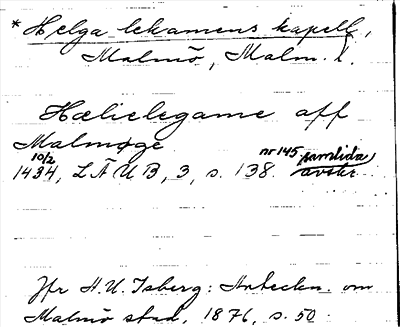 * Helga lekamens kapell,
Malmö, Malm. l.
Hælielegame aff
Malmøge
10/2 1434, LÄUB, 3, s. 138. nr 145 samtida avskr.
Jfr H. U. Isberg: Anteckn. om
Malmö stad, 1876, s. 50.